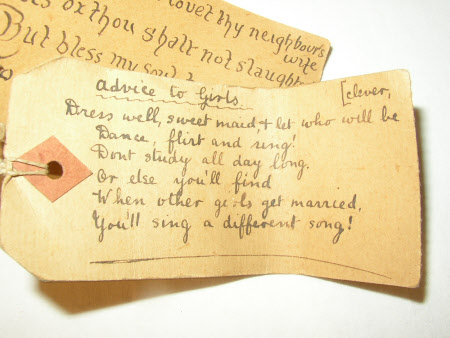 covet thy neighbours
wife
or thou shalt not slaught
But bless my soul
advice to Girls
[clever,
Dress well, sweet maid, & let who will be
Dance, flirt and sing!
Dont study all day long.
Or else you'll find
When other girls get married,
You'll sing a different song!